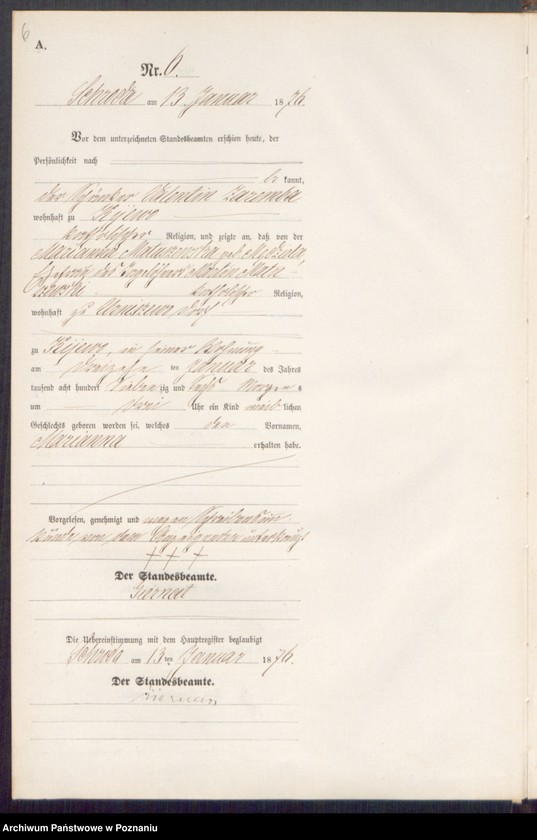 6
A.
Nr. 6.
Schroda am 13 Januar 1876.
Vor dem unterzeichneten Standesbeamten erschien heute, der
Persönlichkeit nach
be kannt,
der Valentin Zaremba
wohnhaft zu Kijewo
katholischer Religion, und zeigte an, daß von der
Marianna geb.
Ehefrau des Tagelöhners Martin
katholischer Religion,
wohnhaft zu Dorf
zu Kijewo, in seiner Wohnung
am dreizehn ten Januar des Jahres
tausend acht hundert sieben zig und sechs Morgens
um drei Uhr ein Kind weib lichen
Geschlechts geboren worden sei, welches den Vornamen,
Marianna erhalten habe.
Vorgelesen, genehmigt und wegen Schreibens
von dem
+ + +
Der Standesbeamte.
Die Uebereinstimmung mit dem Hauptregister beglaubigt
Schroda am 13 ten Januar 1876.
Der Standesbeamte.
Archiwum Państwowe w Poznaniu